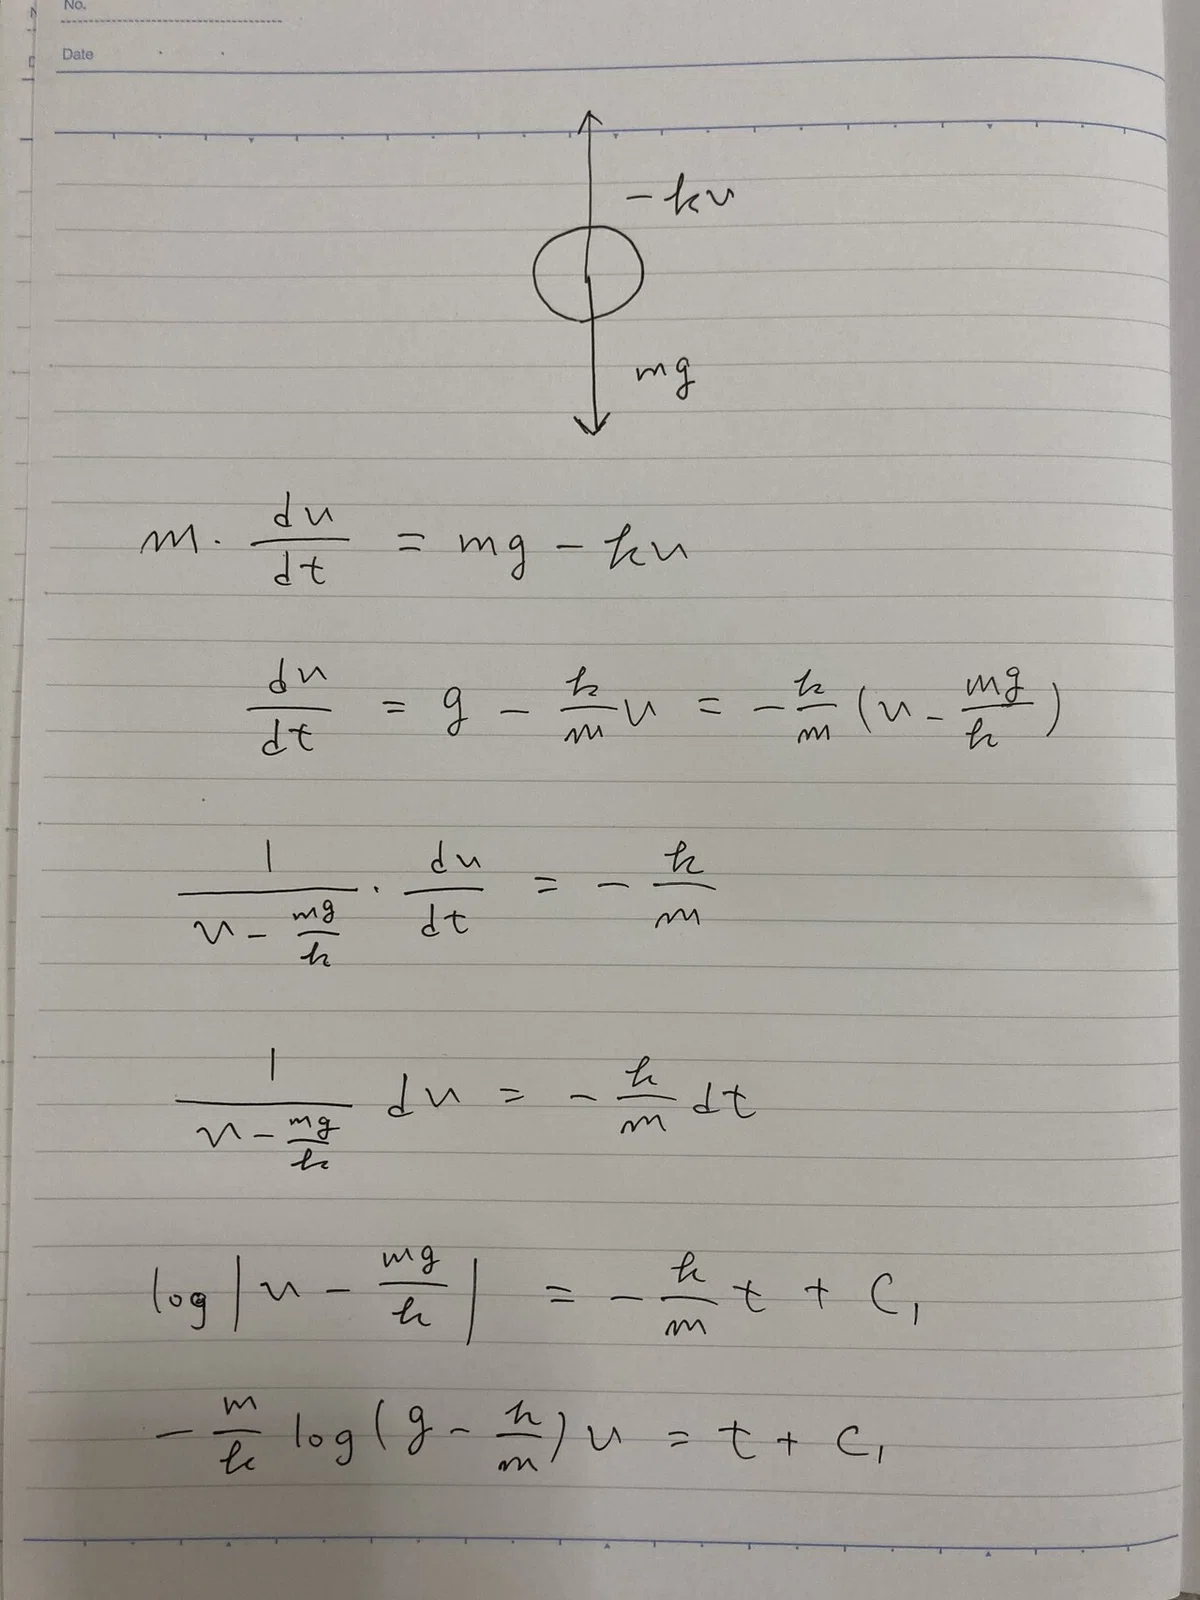 No.
Date
-kv
mg
m・dv/dt = mg - kv
dv/dt = g - k/m v = - k/m (v - mg/k)
1/(v - mg/k) ・ dv/dt = - k/m
1/(v - mg/k) dv = - k/m dt
log|v - mg/k| = - k/m t + C₁
- m/k log(g - k/m)v = t + C₁